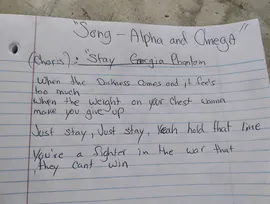 "Song - Alpha and Omega"
(Charis): "Stay Georgia Phantom
When the Darkness Comes and it feels
too much
When the weight on your Chest wanna
make you give up
Just stay, Just stay, Yeah hold that line
You're a fighter in the war that
they cant win